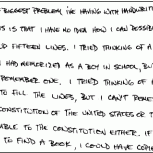 BIGGEST PROBLEM I'VE HAVING WITH HANDWRITI
S IS THAT I HAVE NO IDEA HOW I CAN POSSIB
D FIFTEEN LINES. I TRIED THINKING OF A
I HAD MEMORIZED AS A BOY IN SCHOOL, BUT
REMEMBER ONE. I TRIED THINKING OF
TO FILL THE LINES, BUT I CAN'T REME
CONSTITUTION OF THE UNITED STATES OR T
ABLE TO THE CONSTITUTION EITHER. IF
TO FIND A BOOK, I COULD HAVE COPIE